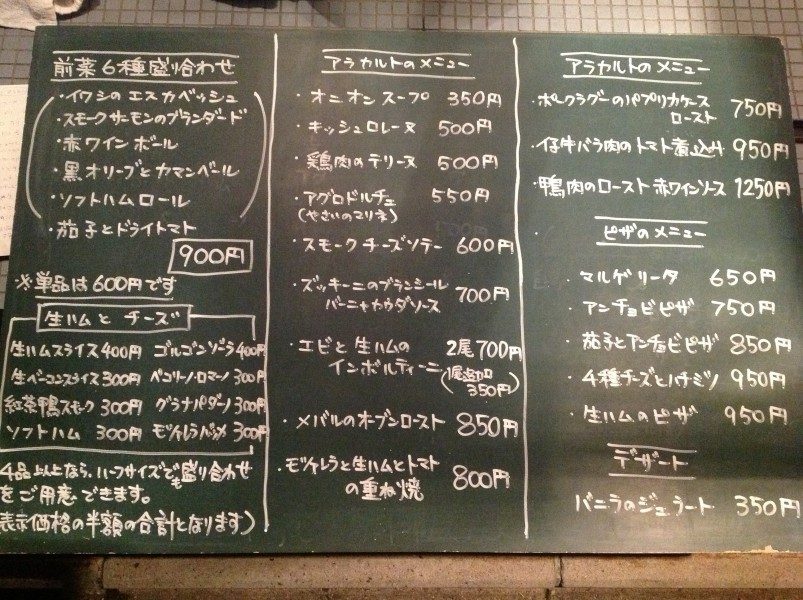 前菜6種盛り合わせ
・イワシのエスカベッシュ
・スモークサーモンのブランダード
・赤ワインボール
・黒オリーブとカマンベール
・ソフトハムロール
・茄子とドライトマト
900円
※単品は600円です
生ハムとチーズ
生ハムスライス400円 ゴルゴンゾーラ400円
生ベーコンスライス300円 ペコリーノ・ロマーノ300円
紅茶鴨スモーク300円 グラナパダーノ300円
ソフトハム300円 モッツァレラ 300円
4品以上なら、ハーフサイズでも盛り合わせ
をご用意できます。
(表示価格の半額の合計となります)
アラカルトのメニュー
・オニオンスープ 350円
・キッシュロレーヌ 500円
・鶏肉のテリーヌ 500円
・アグロドルチェ 550円
(やさいのマリネ)
・スモークチーズソテー 600円
・ズッキーニのブランシール
バーニャカウダソース 700円
・エビと生ハムの 2尾700円
インボルティーニ (1尾追加
350円)
・メバルのオーブンロースト 850円
・モッツァレラと生ハムとトマト
の重ね焼 800円
アラカルトのメニュー
・ポークラグーのパプリカケース
ロースト 750円
・仔牛バラ肉のトマト煮込み 950円
・鴨肉のロースト 赤ワインソース 1250円
ピザのメニュー
・マルゲリータ 650円
・アンチョビピザ 750円
・茄子とアンチョビピザ 850円
・4種チーズとハチミツ 950円
・生ハムのピザ 950円
デザート
・バニラのジェラート 350円